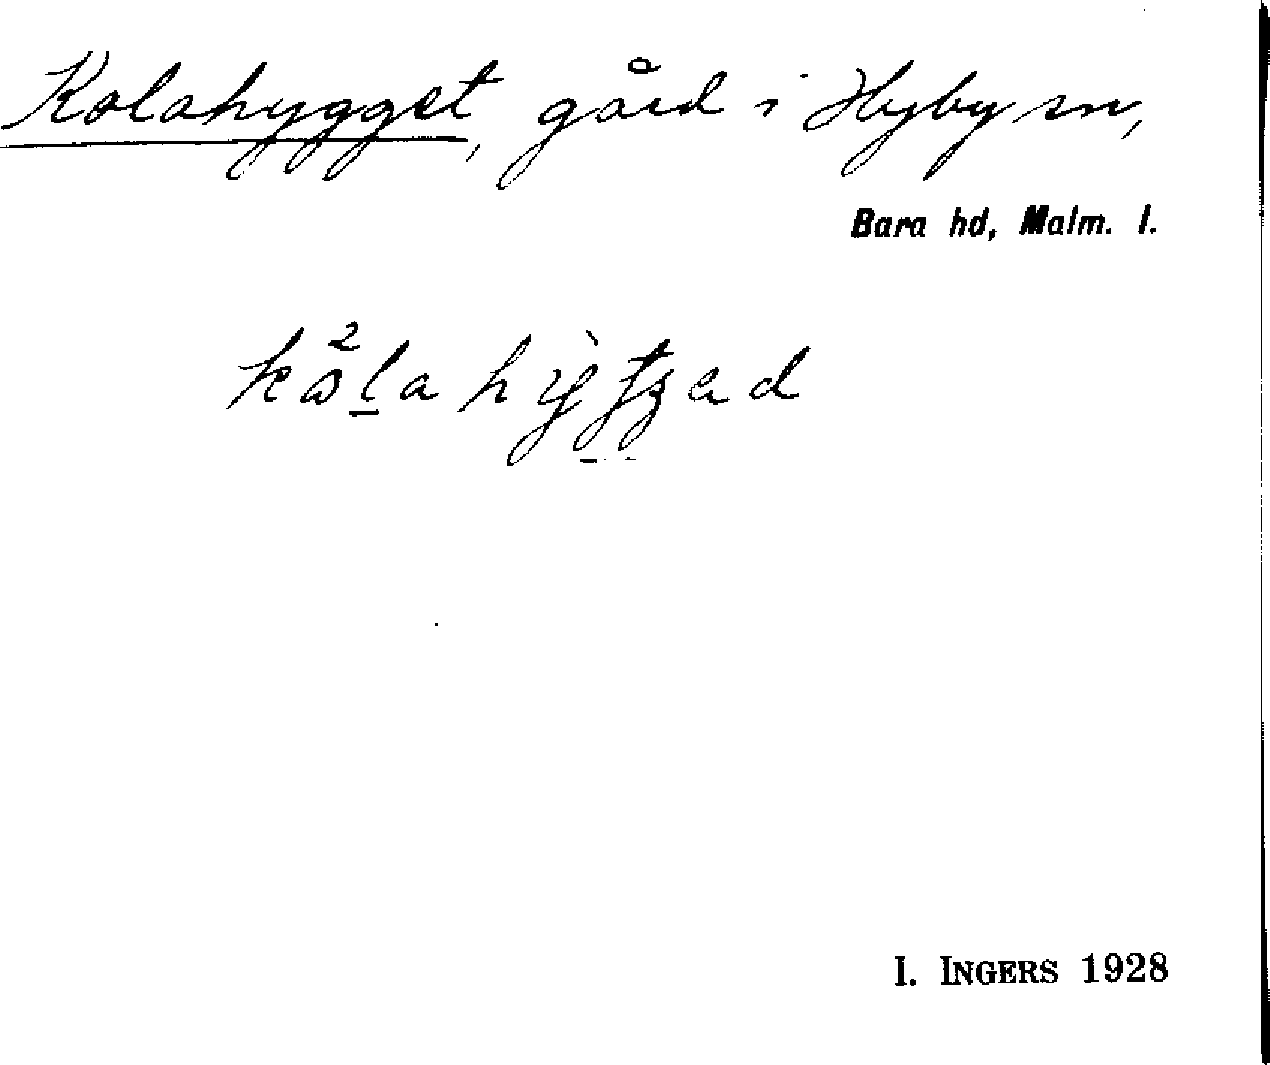 Kolahygget, gård i Hyby sn,
Bara hd, Malm. l.
I. INGERS 1928